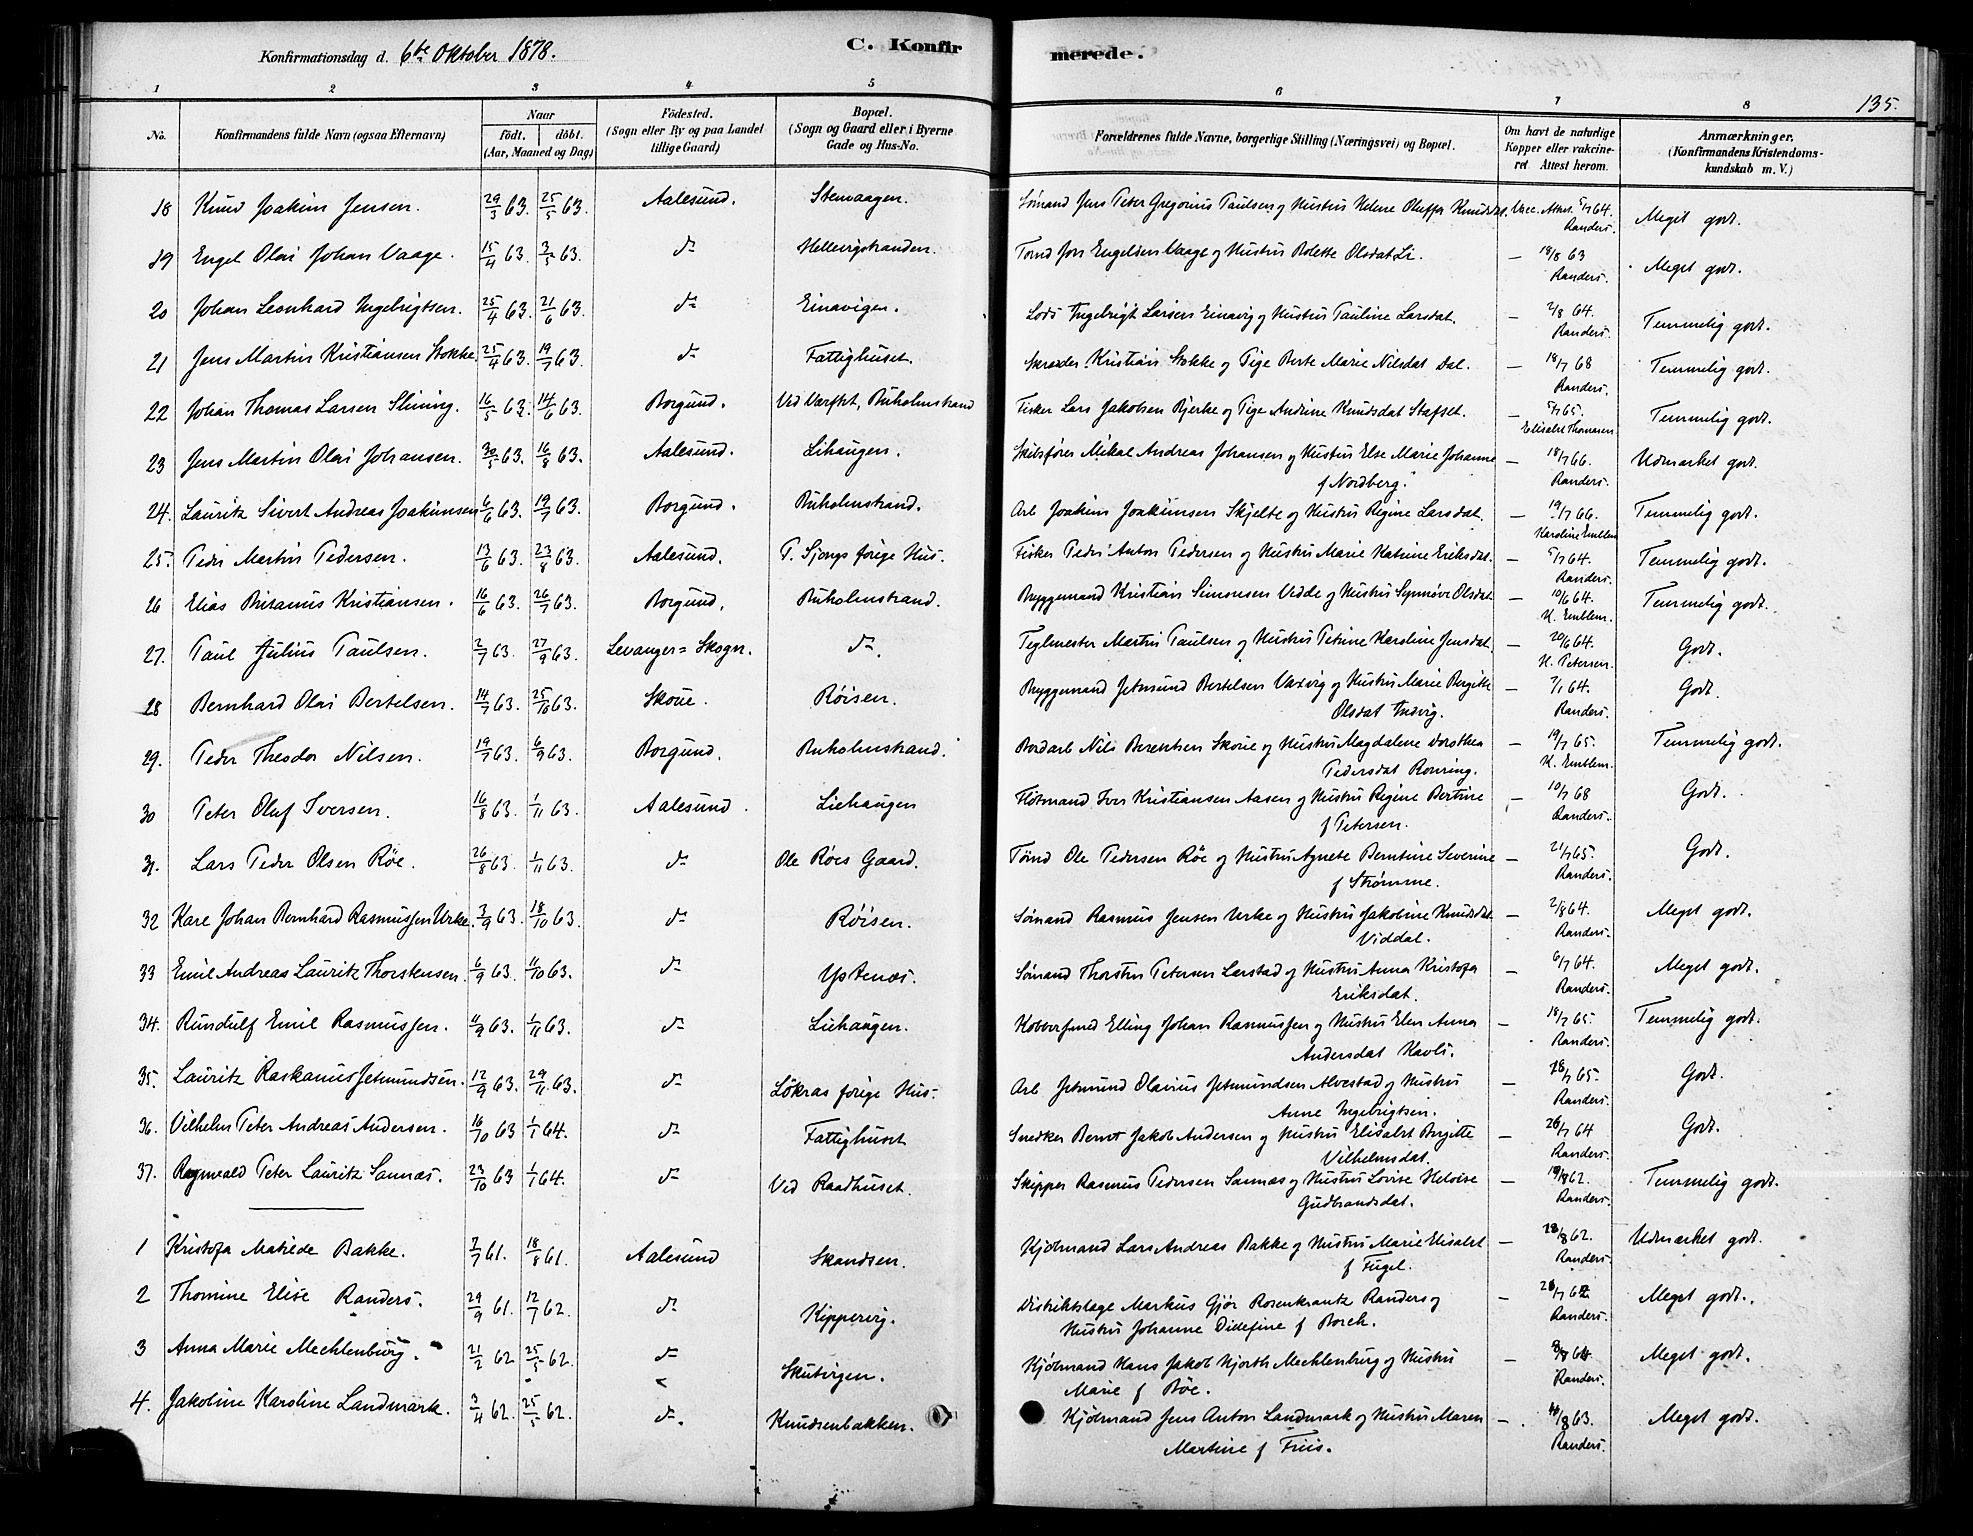 Konfirmationsdag d. 6te Oktober 1878.
C. Konfirmerede.
135.
1 2 3 4 5 6 7 8
No.
Konfirmandens fulde Navn (ogsaa Efternavn)
Naar
født. døbt.
(Aar, Maaned og Dag)
Fødested.
(Sogn eller By og paa Landet
tillige Gaard)
Bopæl.
(Sogn og Gaard eller i Byerne
Gade og Hus-No.
Forældrenes fulde Navne, borgerlige Stilling (Næringsvei) og Bopæl.
Om havt de naturlige
Kopper eller vakcine-
ret Attest herom.
Anmærkninger.
(Konfirmandens Kristendoms-
kundskab m. V.)
18 Knud Joakim Jensen. 29/3 63. 25/5 63. Aalesund. Stenvaagen. Sømand Jens Peter Gregorius Paulsen og Hustru Helene Oluffa Knudsdat. Vacc. Attest 5/7 64. Meget godt.
Randers.
19 Engel Olai Johan Vaage. 15/4 63. 3/5 63. do Hellevigstranden. Tømd Jon Engelsen Vaage og Hustru Bolette Olsdat Li. — 18/8 63 Meget godt.
Randers.
20 Johan Leonhard Ingebrigtsen. 25/4 63. 21/6 63. do Einavigen. Lods Ingebrigt Larsen Einavig og Hustru Pauline Larsdat. — 2/8 64. Temmelig godt.
Randers.
21 Jens Martin Kristiansen Stokke. 25/4 63. 19/7 63. do Fattighuset. Skræder Kristian Stokke og Pige Berte Marie Nilsdat Dal. — 18/7 68 Temmelig godt.
Randers.
22 Johan Thomas Larsen Slining. 16/5 63. 14/6 63. Borgund. Ved Værftet, Buholmstrand Fisker Lars Jakobsen Bjerke og Pige Andrine Knudsdat Stafset. — 5/7 65. Temmelig godt.
Elisabet Thomasen
23 Jens Martin Olai Johansen. 30/5 63. 16/8 63. Aalesund. Lihaugen. Skibsfører Mikal Andreas Johansen og Hustru Else Marie Johanne — 18/7 66. Udmærket godt.
f Nordberg. Randers.
24. Lauritz Sivert Andreas Joakimsen 6/6 63. 19/7 63. Borgund. Buholmstrand. Arb Joakim Joakimsen Skjelte og Hustru Regine Larsdat. — 19/7 66. Temmelig godt.
Karoline Emblem
25. Peder Martin Pedersen. 13/6 63. 23/8 63. Aalesund. P. Sjongs forige Hus. Fisker Peder Anton Pedersen og Hustru Marie Katrine Eriksdat. — 5/7 64. Temmelig godt.
Randers.
26 Elias Kristiansen. 16/6 63. 26/7 63. Borgund. Buholmstrand. Byggemand Kristian Simonsen Vedde og Hustru Synnøve Olsdat. — 10/6 64. Temmelig godt.
K. Emblem.
27. Paul Julius Paulsen. 2/7 63. 27/9 63. Levanger = Skogn. do. Teglmester Martin Paulsen og Hustru Petrine Karoline Jensdat. — 20/6 64. Godt.
K. Petersen.
28 Bernhard Olai Bertelsen. 14/7 63. 25/10 63. Skoue. Røisen. Byggemand Jetmund Bertelsen Vaxvig og Hustru Marie Bergitte — 7/1 64. Godt.
Olsdat Indvig. Randers.
29. Peder Theodor Nilsen. 19/7 63. 6/9 63. Borgund. Buholmstrand. Bordarb Nils Berentsen Skoue og Hustru Magdalene Dorothea — 19/7 65. Temmelig godt.
Pedersdat Rouring. K. Emblem.
30 Peter Oluf Iversen. 16/8 63. 1/11 63. Aalesund. Liehaugen Flotmand Iver Kristiansen Aasen og Hustru Regine Bertine — 10/7 68 Godt.
f Petersen. Randers.
31. Lars Peder Olsen Røe. 26/8 63. 1/11 63. do Ole Røes Gaard. Tømd Ole Pedersen Røe og Hustru Agnete Berntine Severine — 21/7 65. Godt.
f Strømme. Randers.
32 Karl Johan Bernhard Rasmussen Urke. 3/9 63. 18/10 63. do Røisen. Sømand Rasmus Jensen Urke og Hustru Jakobine Knudsdat — 2/8 64. Meget godt.
Viddal. Randers.
33 Emil Andreas Lauritz Thorstensen. 6/9 63. 11/10 63. do Ystenæs. Sømand Thorsten Petersen Larstad og Hustru Anna Kristofa — 6/7 64. Meget godt.
Eriksdat. Randers.
34. Rundulf Emil Rasmussen. 11/9 63. 1/11 63. do Liehaugen. Kobbersmed Elling Johan Rasmussen og Hustru Elen Anna — 18/7 65. Temmelig godt.
Andersdat Kavli. Randers.
35. Lauritz Raskanus Jetmundsen. 12/9 63. 29/11 63. do Løkras forige Hus. Arb Jetmund Olavius Jetmundsen Alvestad og Hustru — 28/7 65. Godt.
Anne Ingebrigtsen. Randers.
36. Vilhelm Peter Andreas Andersen. 16/10 63 1/1 64. do Fattighuset Snedker Bernt Jakob Andersen og Hustru Elisabet Bergitte — 26/7 64 Godt.
Vilhelmsdat. Randers.
37. Ragnvald Peter Lauritz Sannæs. 23/10 63 1/1 64. do Ved Raadhuset. Skipper Rasmus Pedersen Sannæs og Hustru Lovise Heloise — 19/8 62. Temmelig godt.
Gudbrandsdat. Randers.
1 Kristofa Matilde Bakke. 7/7 61. 18/8 61. Aalesund Skandsen. Kjøbmand Lars Andreas Bakke og Hustru Marie Elisabet — 28/8 62. Udmærket godt.
f Fugel. Randers.
2 Thomine Elise Randers. 29/9 61. 12/7 62. do Kippervig. Distriktslæge Markus Gjør Rosenkrantz Randers og — 26/7 62 Meget godt.
Hustru Johanne Didefine f Borch. Randers.
3 Anna Marie Mechlenburg. 21/2 62 25/5 62. do Skutvigen. Kjøbmand Hans Jakob Hjorth Mechlenburg og Hustru — 8/8 64 Meget godt.
Marie f Røe. Randers.
4. Jakobine Karoline Landmark. 3/4 62. 25/5 62. do. Knudsenbakken. Kjøbmand Jens Anton Landmark og Hustru Maren — 11/8 63. Meget godt.
Martine f Friis. Randers.